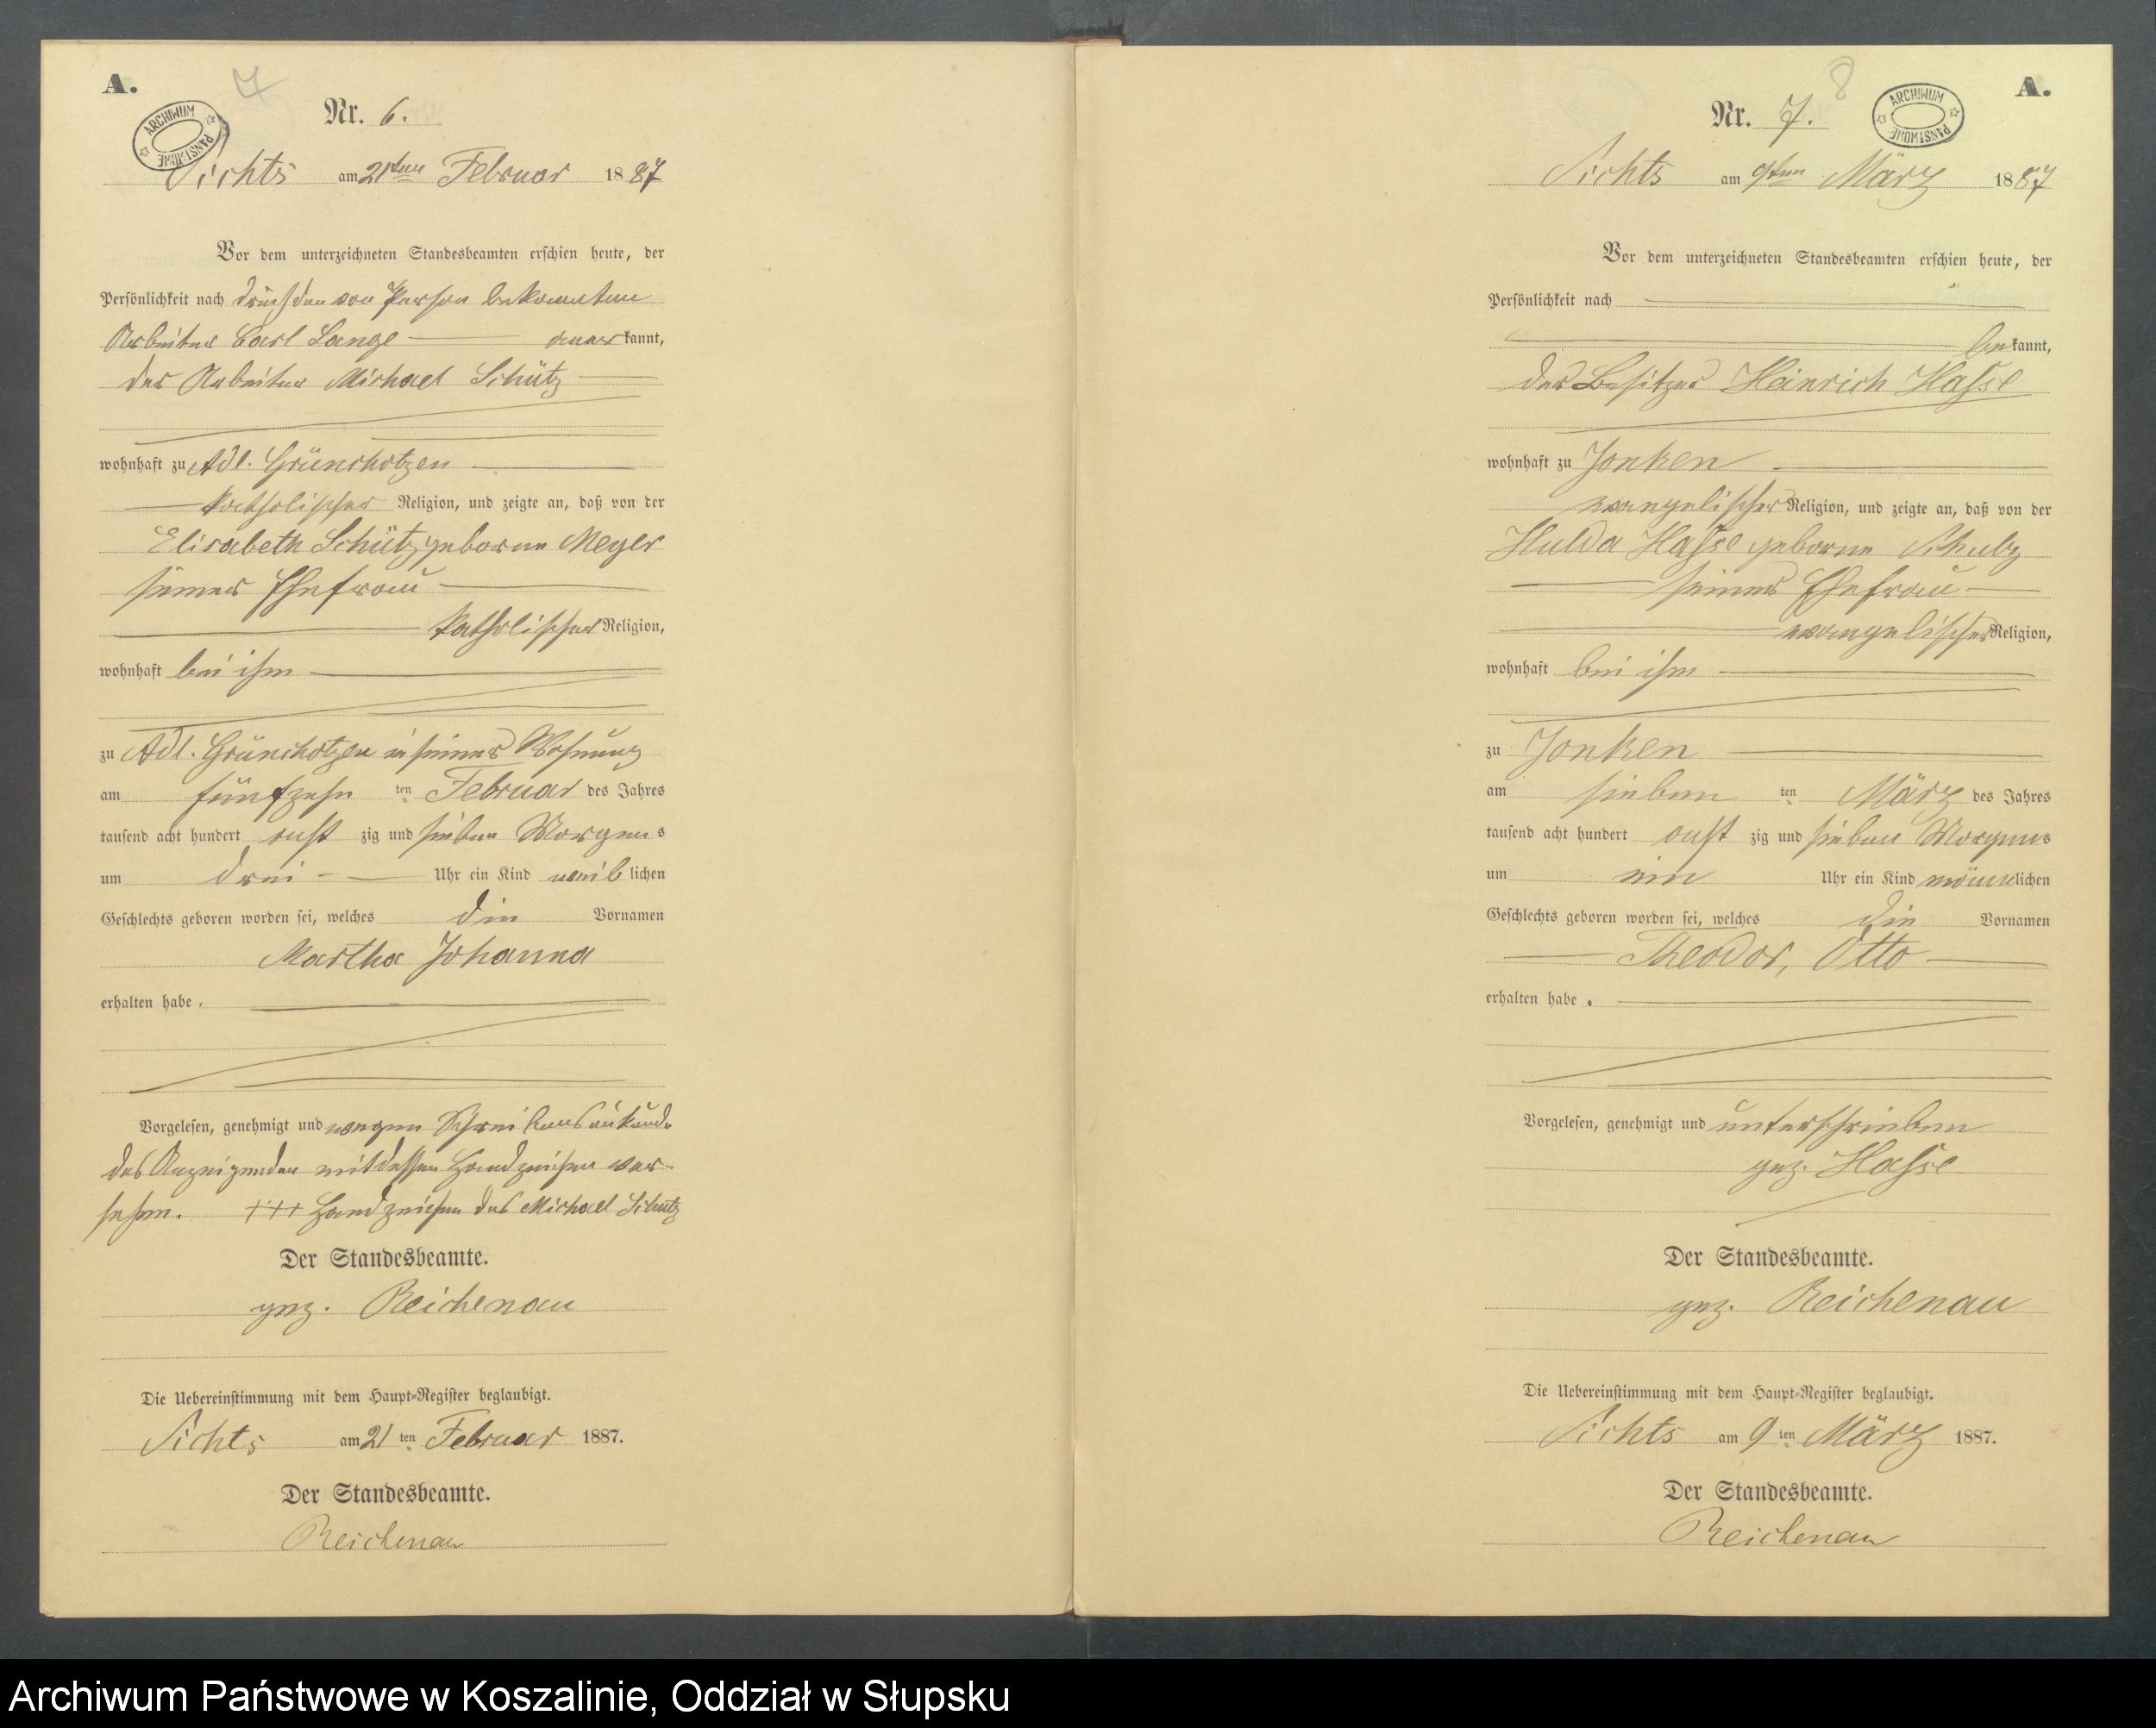 A.
7
ARCHIWUM PAŃSTWOWE
Nr. 6.
Sichts am 21ten Februar 1887
Vor dem unterzeichneten Standesbeamten erschien heute, der
Persönlichkeit nach durch den von Person bekannten
Arbeiter Carl Lange anerkannt,
der Arbeiter Michael Schütz
wohnhaft zu Adl. Grünchotzen
katholischer Religion, und zeigte an, daß von der
Elisabeth Schütz geborne Meyer
seiner Ehefrau
katholischer Religion,
wohnhaft bei ihm
zu Adl. Grünchotzen in seiner Wohnung
am fünfzehn ten Februar des Jahres
tausend acht hundert acht zig und sieben Morgens
um drei Uhr ein Kind weiblichen
Geschlechts geboren worden sei, welches die Vornamen
Martha Johanna
erhalten habe.
Vorgelesen, genehmigt und wegen Schreibensunkunde
des Anzeigenden mit dessen Handzeichen ver-
sehen. +++ Handzeichen des Michael Schütz
Der Standesbeamte.
gez. Reichenau
Die Uebereinstimmung mit dem Haupt-Register beglaubigt.
Sichts am 21 ten Februar 1887.
Der Standesbeamte.
Reichenau
8
A.
ARCHIWUM PAŃSTWOWE
Nr. 7.
Sichts am 9ten März 1887
Vor dem unterzeichneten Standesbeamten erschien heute, der
Persönlichkeit nach
bekannt,
der Besitzer Heinrich Hasse
wohnhaft zu Jonken
evangelischer Religion, und zeigte an, daß von der
Hulda Hasse geborne Schulz
seiner Ehefrau
evangelischer Religion,
wohnhaft bei ihm
zu Jonken
am sieben ten März des Jahres
tausend acht hundert acht zig und sieben Morgens
um ein Uhr ein Kind männlichen
Geschlechts geboren worden sei, welches die Vornamen
Theodor, Otto
erhalten habe.
Vorgelesen, genehmigt und unterschrieben
gez. Hasse
Der Standesbeamte.
gez. Reichenau
Die Uebereinstimmung mit dem Haupt-Register beglaubigt.
Sichts am 9 ten März 1887.
Der Standesbeamte.
Reichenau
Archiwum Państwowe w Koszalinie, Oddział w Słupsku